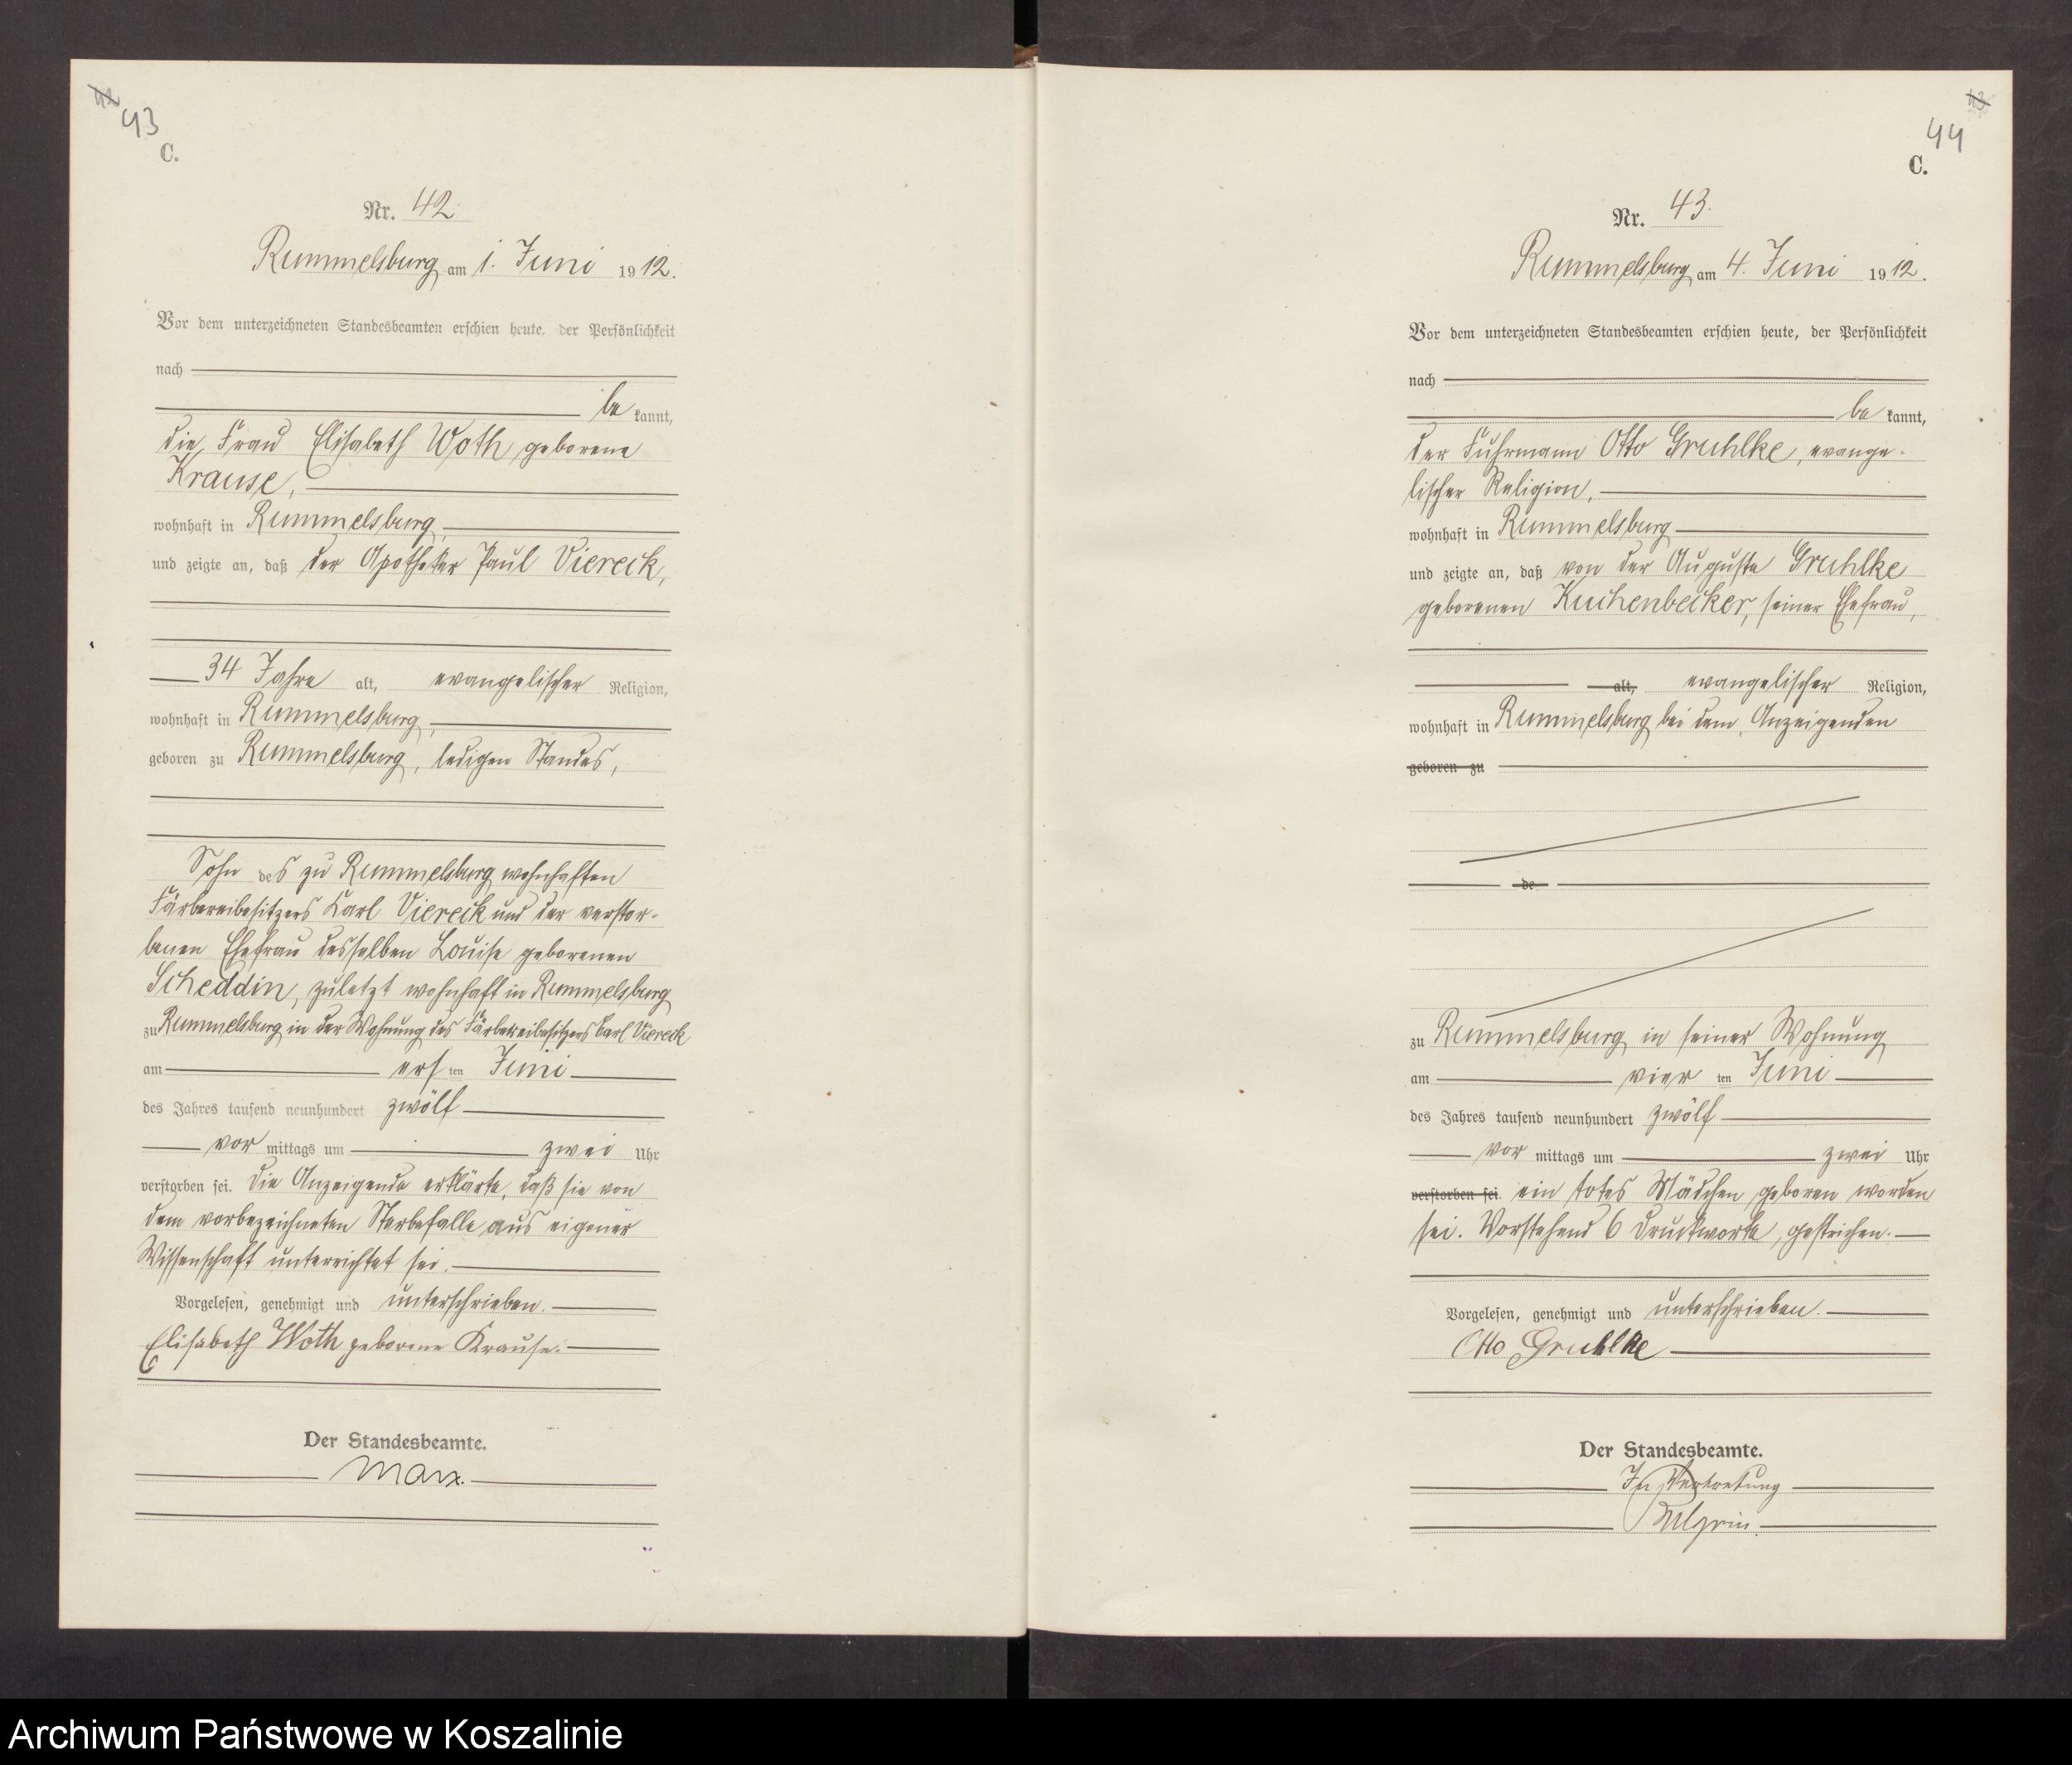 42
43
C.
Nr. 42
Rummelsburg am 1. Juni 1912.
Vor dem unterzeichneten Standesbeamten erschien heute, der Persönlichkeit
nach
be kannt,
die Frau Elisabeth Woth, geborene
Krause,
wohnhaft in Rummelsburg,
und zeigte an, daß der Apotheker Paul Viereck,
34 Jahre alt, evangelischer Religion,
wohnhaft in Rummelsburg,
geboren zu Rummelsburg, ledigen Standes,
Sohn des zu Rummelsburg wohnhaften
Färbereibesitzers Karl Viereck und der verstor-
benen Ehefrau desselben Louise geborenen
Scheddin, zuletzt wohnhaft in Rummelsburg
zu Rummelsburg in der Wohnung des Färbereibesitzers Carl Viereck
am ersten Juni
des Jahres tausend neunhundert zwölf
vor mittags um zwei Uhr
verstorben sei. Die Anzeigende erklärte, daß sie von
dem vorbezeichneten Sterbefalle aus eigener
Wissenschaft unterrichtet sei.
Vorgelesen, genehmigt und unterschrieben.
Elisabeth Woth geborene Krause.
Der Standesbeamte.
Marx.
43
44
C.
Nr. 43.
Rummelsburg am 4. Juni 1912.
Vor dem unterzeichneten Standesbeamten erschien heute, der Persönlichkeit
nach
be kannt,
der Fuhrmann Otto Gruhlke, evange-
lischer Religion,
wohnhaft in Rummelsburg
und zeigte an, daß von der Auguste Gruhlke
geborenen Kuchenbecker, seiner Ehefrau,
alt, evangelischer Religion,
wohnhaft in Rummelsburg bei dem Anzeigenden
geboren zu
de
zu Rummelsburg in seiner Wohnung
am vierten Juni
des Jahres tausend neunhundert zwölf
vor mittags um zwei Uhr
verstorben sei ein totes Mädchen geboren worden
sei. Vorstehend 6 Druckworte, gestrichen.
Vorgelesen, genehmigt und unterschrieben.
Otto Gruhlke
Der Standesbeamte.
In Vertretung
Archiwum Państwowe w Koszalinie